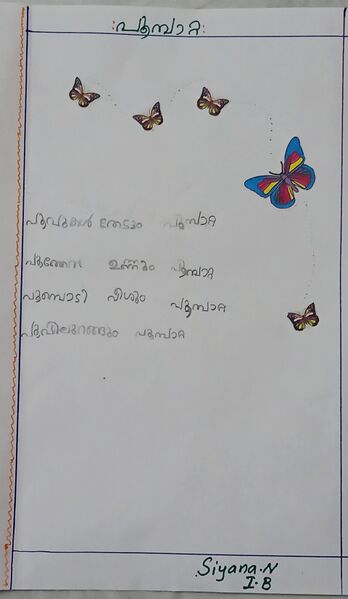 :പൂമ്പാറ്റ:
പൂവുകൾ തേടും പൂമ്പാറ്റ
പൂന്തേൻ ഉണ്ണും പൂമ്പാറ്റ
പൂമ്പൊടി വീശും പൂമ്പാറ്റ
പൂവിലുറങ്ങും പൂമ്പാറ്റ
Siyana.N
I.B